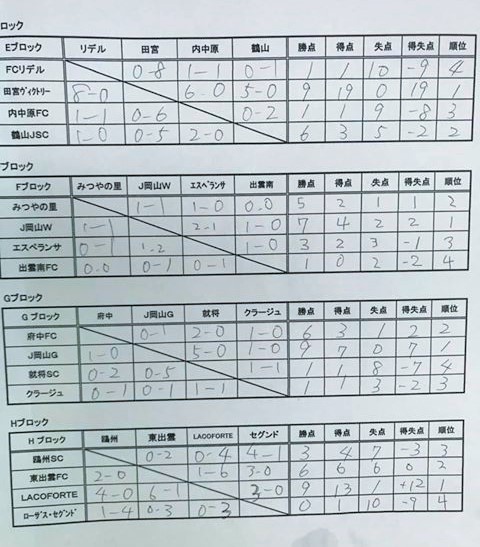 ロック
Eブロック リデル 田宮 内中原 鶴山 勝点 得点 失点 得失点 順位
FCリデル 0-8 1-1 0-1 1 1 10 -9 4
田宮ヴィクトリー 8-0 6-0 5-0 9 19 0 19 1
内中原FC 1-1 0-6 0-2 1 1 9 -8 3
鶴山JSC 1-0 0-5 2-0 6 3 5 -2 2
ブロック
Fブロック みつやの里 J岡山W エスペランサ 出雲南 勝点 得点 失点 得失点 順位
みつやの里 1-1 1-0 0-0 5 2 1 1 2
J岡山W 1-1 2-1 1-0 7 4 2 2 1
エスペランサ 0-1 1-2 1-0 3 2 3 -1 3
出雲南FC 0-0 0-1 0-1 1 0 2 -2 4
Gブロック
Gブロック 府中 J岡山G 就将 クラージュ 勝点 得点 失点 得失点 順位
府中FC 0-1 2-0 1-0 6 3 1 2 2
J岡山G 1-0 5-0 1-0 9 7 0 7 1
就将SC 0-2 0-5 1-1 1 1 8 -7 4
クラージュ 0-1 0-1 1-1 1 1 3 -2 3
Hブロック
Hブロック 鴎州 東出雲 LACOFORTE セグンド 勝点 得点 失点 得失点 順位
鴎州SC 0-2 0-4 4-1 3 4 7 -3 3
東出雲FC 2-0 1-6 3-0 6 6 6 0 2
LACOFORTE 4-0 6-1 3-0 9 13 1 +12 1
ローザス・セグンド 1-4 0-3 0-3 0 1 10 -9 4